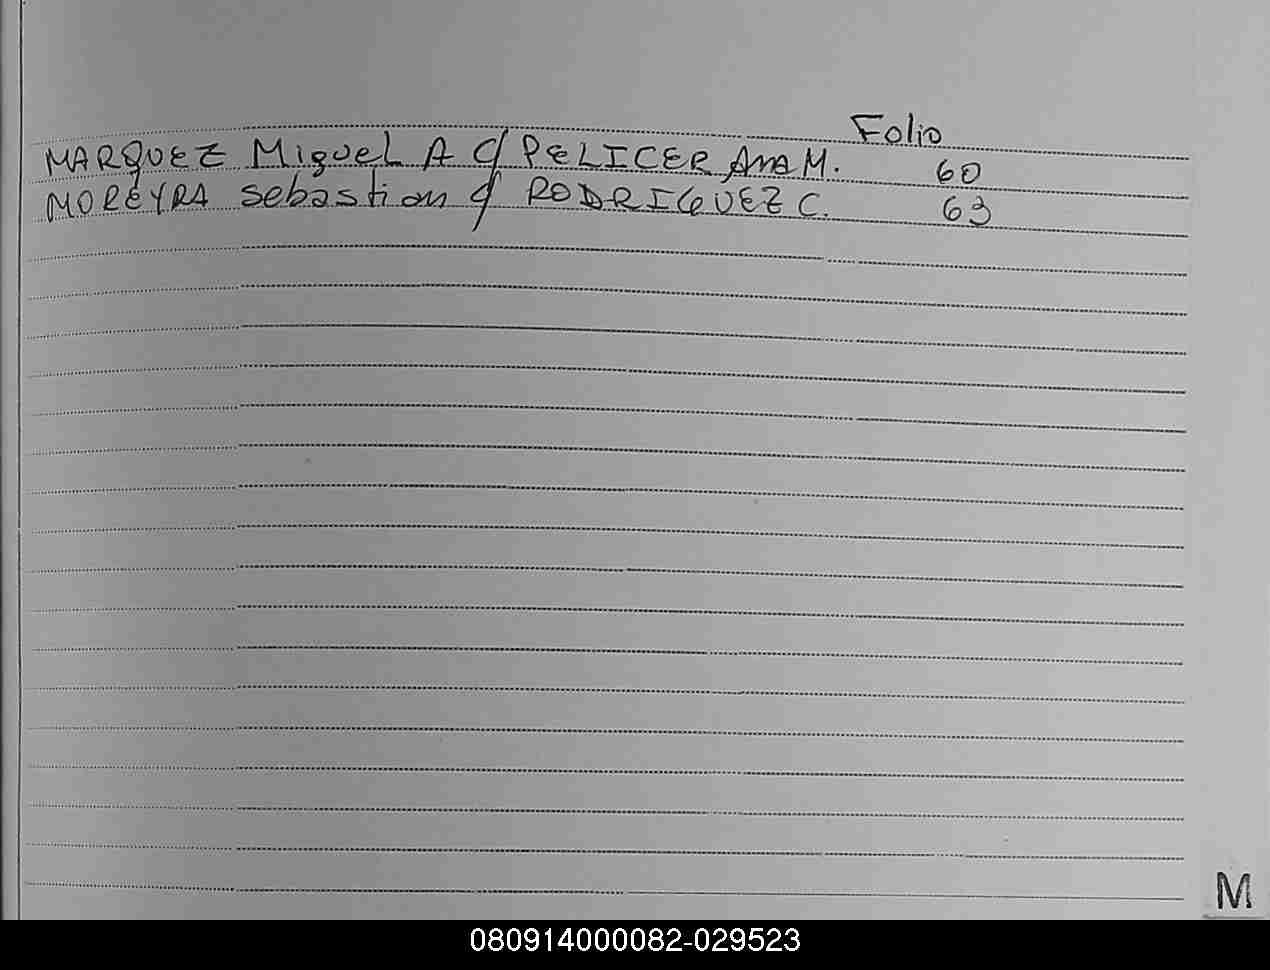 Folio
MARQUEZ Miguel A c/ PELICER Ana M. 60
MOREYRA Sebastian c/ RODRIGUEZ C. 63
M
080914000082-029523